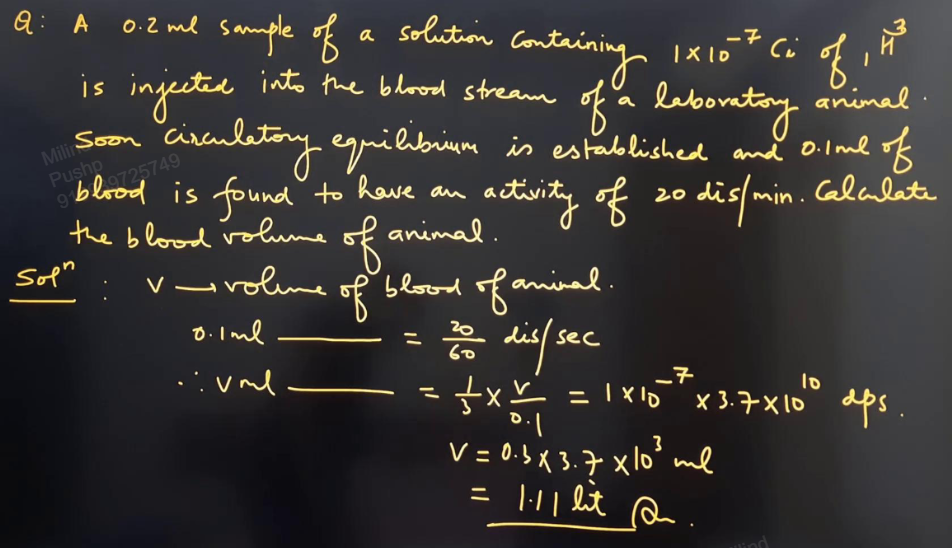 Q: A 0.2 ml sample of a solution containing 1×10⁻⁷ Ci of ₁H³
is injected into the blood stream of a laboratory animal.
Soon circulatory equilibrium is established and 0.1ml of
blood is found to have an activity of 20 dis/min. Calculate
the blood volume of animal.
Solⁿ : V → volume of blood of animal.
0.1ml ——— = 20/60 dis/sec
∴ V ml ——— = 1/3 × V/0.1 = 1×10⁻⁷ × 3.7×10¹⁰ dps.
V = 0.3 × 3.7 × 10³ ml
= 1.11 lit
Pushp